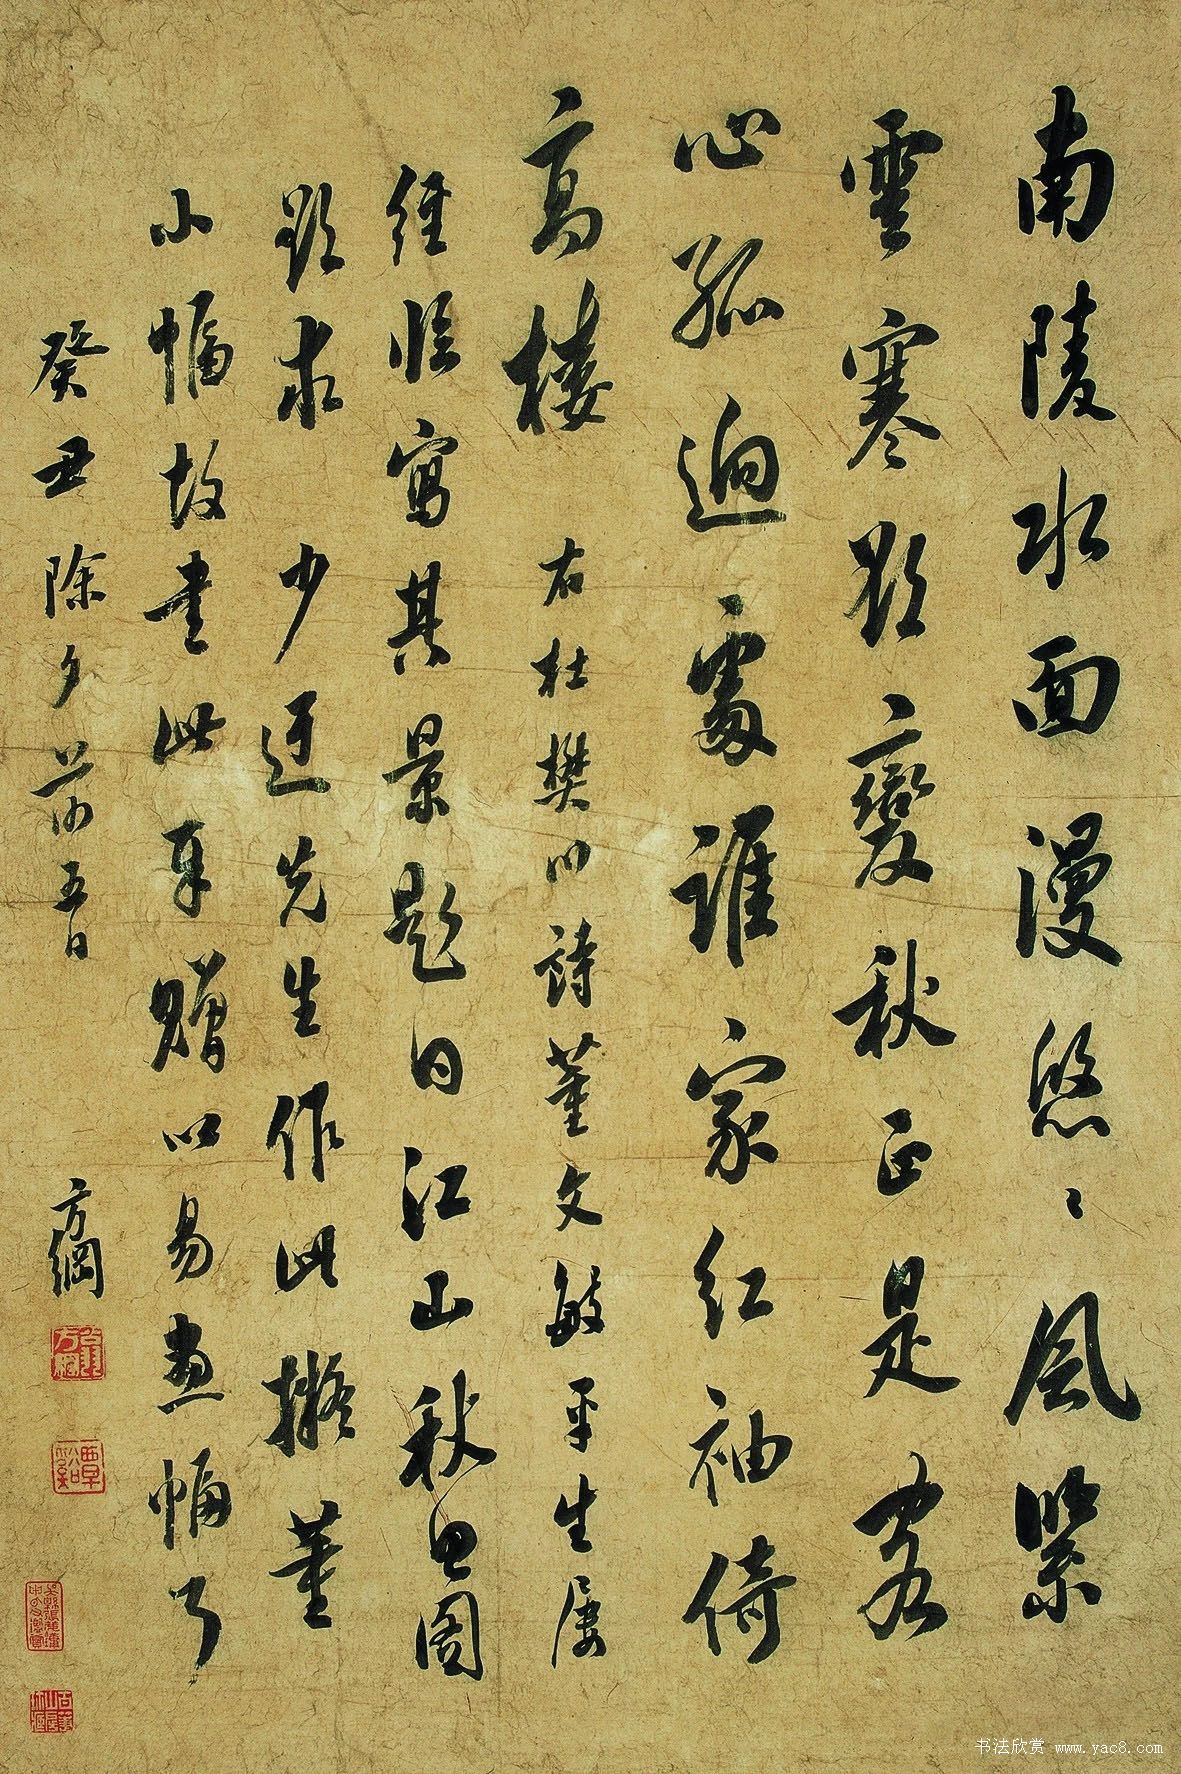 南陵水面漫悠〻風緊
雲寒欲變秋正是客
心孤迥處誰家紅袖倚
高樓 右杜樊川詩董文敏平生屢
經臨寫其景題曰江山秋思圖
欲求少迂先生作此擬董
小幅故書此奉贈以易畫幅了
癸丑除夕前五日 方綱
翁方綱
覃谿
书法欣赏 www.yac8.com